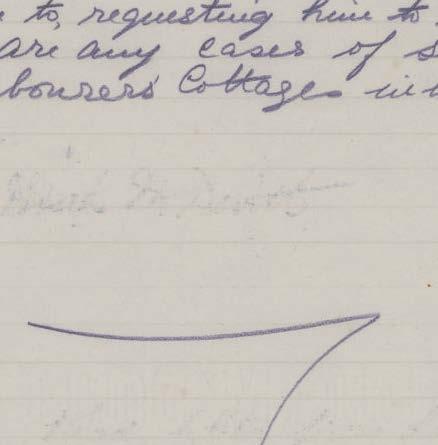 to, requesting him to
are any cases of
bourers' Cottages in